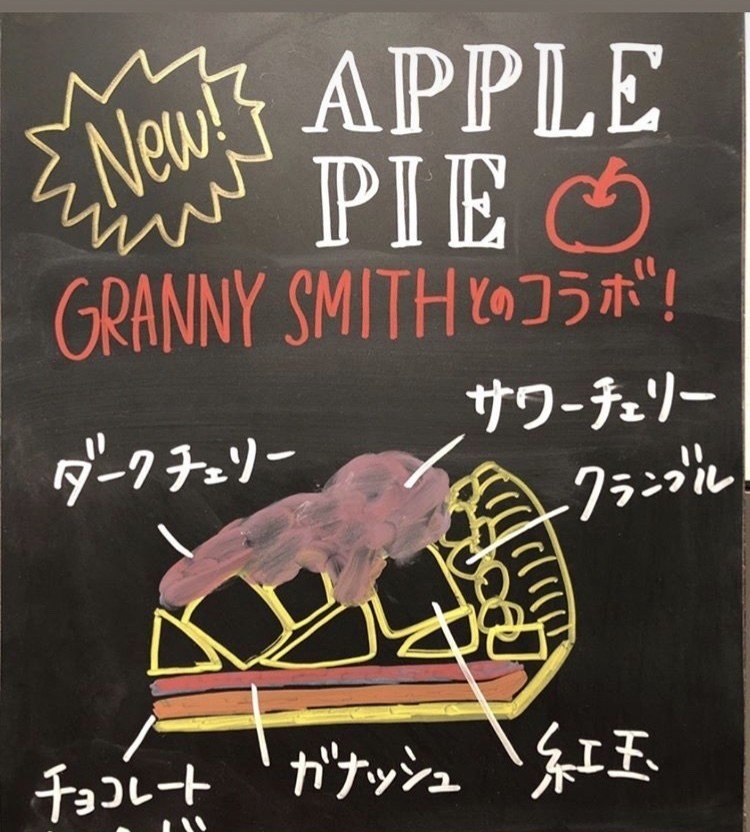 New!
APPLE
PIE
GRANNY SMITHとのコラボ!
サワーチェリー
ダークチェリー
クランブル
紅玉
ガナッシュ
チョコレート